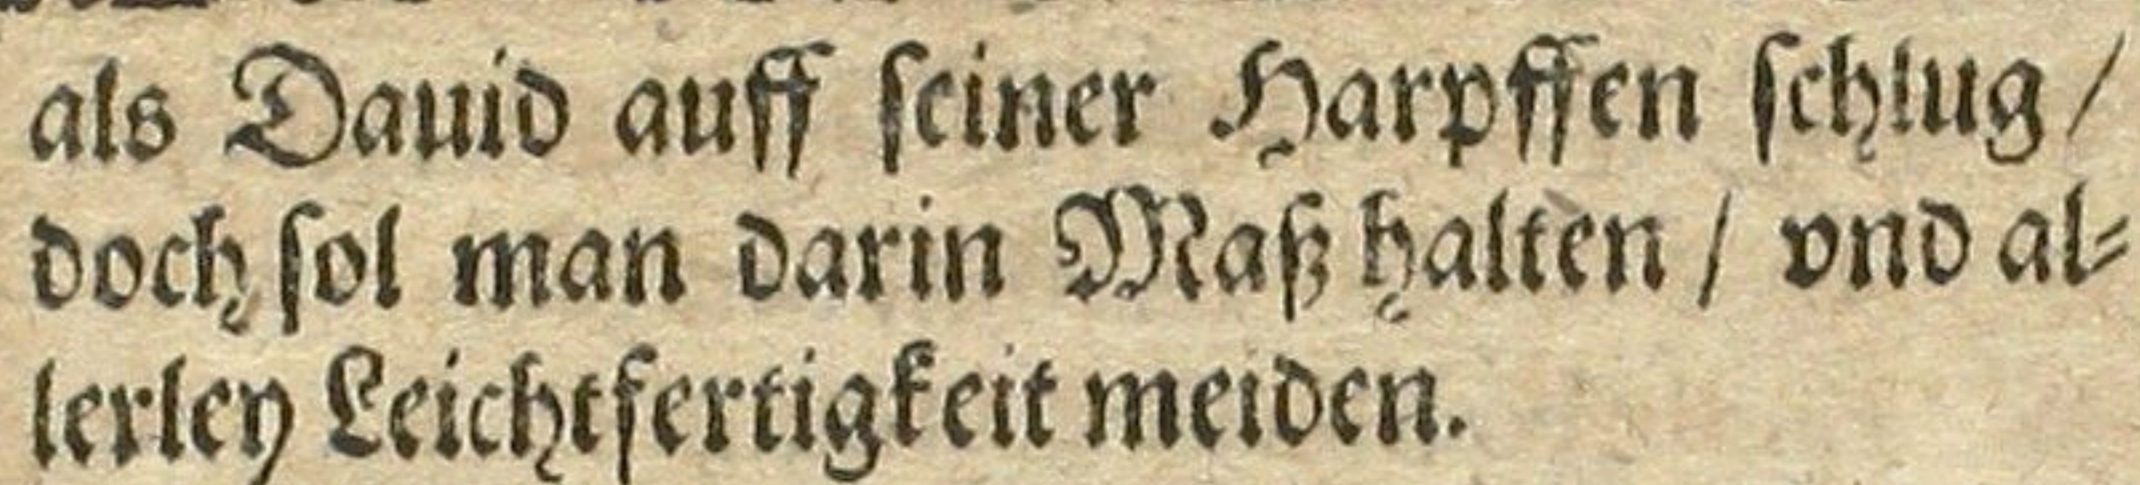 als Dauid auff ſeiner Harpffen ſchlug /
doch ſol man darin Maß halten / vnd al⸗
lerley Leichtfertigkeit meiden.